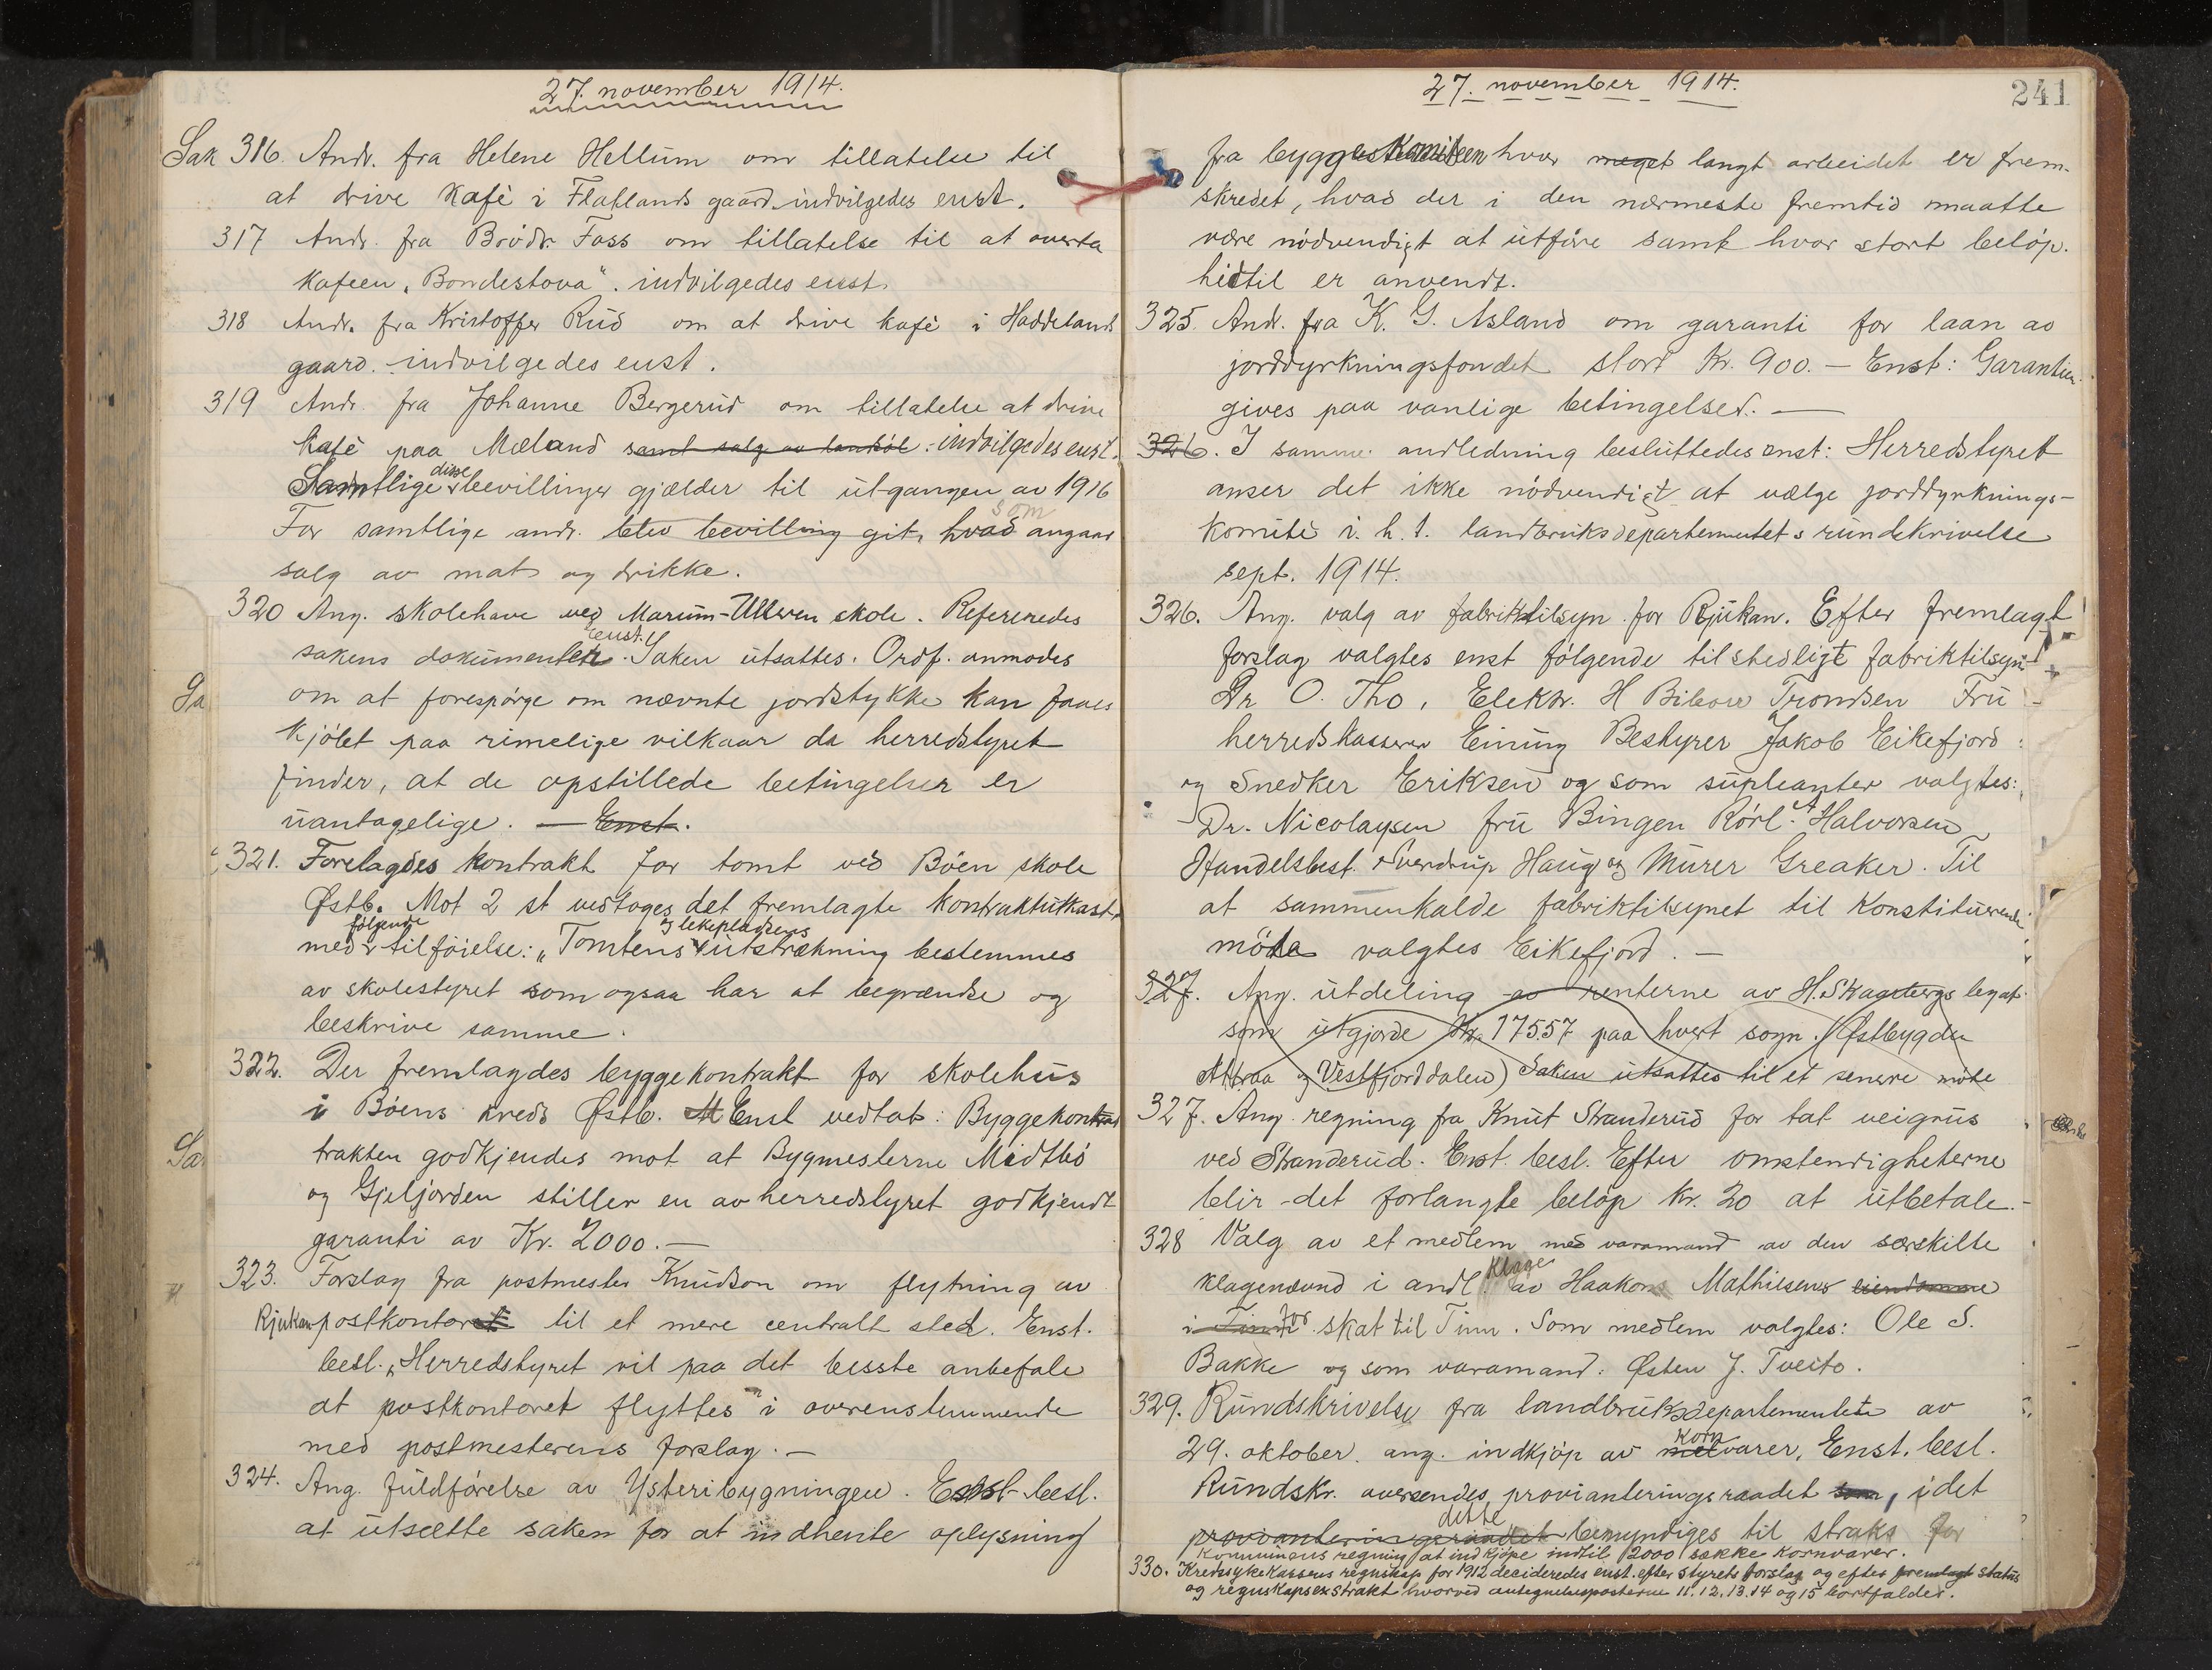 27. november 1914.
Sak 316. Andr. fra Helene Hellum om tillatelse til
at drive kafè i Flatlands gaard indvilgedes enst.
317 Andr. fra Brödr. Foss om tillatelse til at overta
kafeen „Bondestova“. indvilgedes enst.
318 Andr. fra Kristoffer Rud om at drive kafè i Haddelands
gaard. indvilgedes enst.
319 Andr. fra Johanne Bergerud om tillatelse at drive
kafè paa Mæland samt salg av landöl. indvilgedes enst.
Samtlige disse bevillinger gjælder til utgangen av 1916
For samtlige andr. blev bevilling git, hvad som angaar
salg av mat og drikke.
320 Ang. skolehave ved Marum-Ullern skole. Refereredes
sakens dokumenter. enst. Saken utsattes. Ordf. anmodes
om at forespörge om nævnte jordstykke kan faaes
kjöbt paa rimelige vilkaar da herredstyret
finder, at de opstillede betingelser er
uantagelige. — Enst.
321. Forelagdes kontrakt for tomt ved Böen skole
Østb. Mot 2 st vedtoges det fremlagte kontraktutkast
med følgende tilföielse: „Tomtens og lekepladsens utstrækning bestemmes
av skolestyret som ogsaa har at begrændse og
beskrive samme.
322. Der fremlagdes byggekontrakt for skolehus
i Böens kreds Østb. Enst vedtat: Byggekon
trakten godkjendes mot at Bygmesterne Midtbö
og Gjeljorden stiller en av herredstyret godkjendt
garanti av Kr. 2000.—
323. Forslag fra postmester Knudson om flytning av
Rjukan postkontoret til et mere centralt sted. Enst.
besl. „Herredstyret vil paa det beste anbefale
at postkontoret flyttes i overenstemmende
med postmesterens forslag.—
324. Ang. fuldförelse av Ysteribygningen. Enst. besl.
at utsætte saken for at indhente oplysning
27. november 1914.
241
fra byggeskomiteen hvor meget langt arbeidet er frem-
skredet, hvad der i den nærmeste fremtid maatte
være nödvendigt at utföre samt hvor stort belöp.
hidtil er anvendt.
325. Andr. fra K. G. Asland om garanti for laan av
jorddyrkningsfondet stort Kr. 900.— Enst: Garantien
gives paa vanlige betingelser.—
326. I samme andledning besluttedes enst: Herredstyret
anser det ikke nödvendigt at vælge jorddyrknings-
komitè i. h. t. landbruksdepartementets rundskrivelse
sept. 1914.
326. Ang. valg av fabriktilsyn for Rjukan. Efter fremlagt
forslag valgtes enst fölgende tilstedligt fabriktilsyn
Dr O. Tho, Elektr. H Bibow Trondsen Fru
herredskasserer Einung Bestyrer Jakob Eikefjord
og Snedker Eriksen og som supleanter valgtes:
Dr. Nicolaysen fru Bingen Rörl. A. Halvorsen
Handelsbest. Sverdrup Haug og Murer Greaker. Til
at sammenkalde fabriktilsynet til konstituerende
möte valgtes Eikefjord.—
327. Ang. utdeling av renterne av H. Skaarbergs legat
som utgjorde Kr. 175.57 paa hvert sogn. (Østbygden
Attraa og Vestfjorddalen) Saken utsattes til et senere möte
327. Ang. regning fra Knut Stranderud for tat veigrus
ved Stranderud. Enst. besl. Efter omstendigheterne
blir det forlangte belöp kr. 20 at utbetale.
328 Valg av et medlem med varamand av den særskilte
klagenævnd i andl. klage av Haakon Mathisens eiendomme
i Tinn for skat til Tinn. Som medlem valgtes: Ole S.
Bakke og som varamand: Østen J. Tveito.
329. Rundskrivelse fra landbruksdepartementet av
29. oktober ang. indkjöp av mel korn varer. Enst. besl.
Rundskr. oversendes provianteringsraadet som, idet
provianteringsraadet dette bemyndiges til straks for
kommunens regning at indkjöpe indtil 2000 sække kornvarer.
330. Kredssykekassens regnskap for 1912 decideredes enst. efter styrets forslag og efter fremlagt status
og regnskapsexstrakt hvorved antegnelsesposterne 11. 12. 13. 14 og 15 bortfalder.